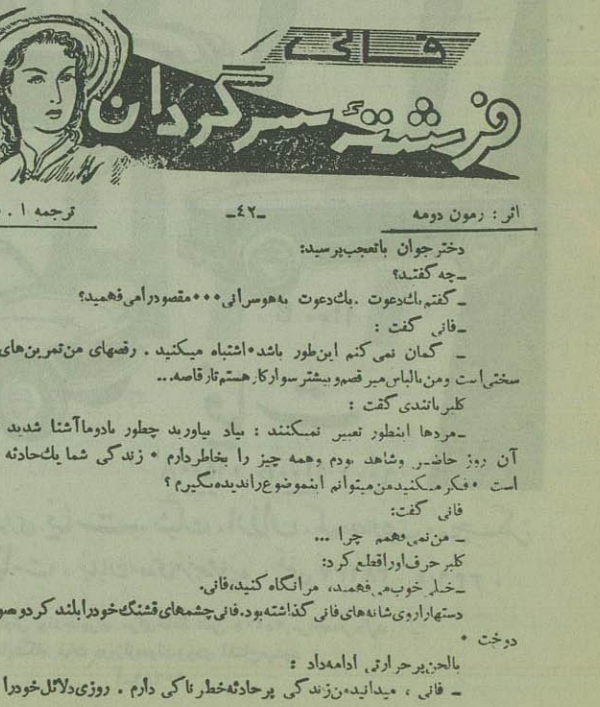 فانی
فرشته سرگردان
اثر : رمون دومه
ـ٤٢ـ
ترجمه ا .
دختر جوان باتعجب پرسید:
ـ چه گفتید؟
ـ گفتم یك دعوت . یك دعوت به هوسرانی ... مقصودرا می فهمید؟
ـ فانی گفت :
ـ گمان نمی کنم این طور باشد . اشتباه میکنید . رقصهای من تمرین های
سختی است و من بالباس میرقصم و بیشتر سوارکار هستم تا رقاصه...
کلبر باتندی گفت :
ـ مردها اینطور تعبیر نمیکنند : بیاد بیاورید چطور بادوما آشنا شدید
آن روز حاضر وشاهد بودم وهمه چیز را بخاطردارم . زندگی شما یك حادثه
است . فکر میکنید من میتوانم این موضوع را ندیده بگیرم ؟
فانی گفت:
ـ من نمی فهمم چرا ...
کلبر حرف اورا قطع کرد:
ـ خیلی خوب می فهمید، مرا نگاه کنید، فانی.
دستهارا روی شانه های فانی گذاشته بود. فانی چشمهای قشنگ خودرا بلند کرد و
دوخت .
بالحن پرحرارتی ادامه داد :
ـ فانی ، میدانید من زندگی پرحادثه خطرناکی دارم . روزی دلائل خودرا